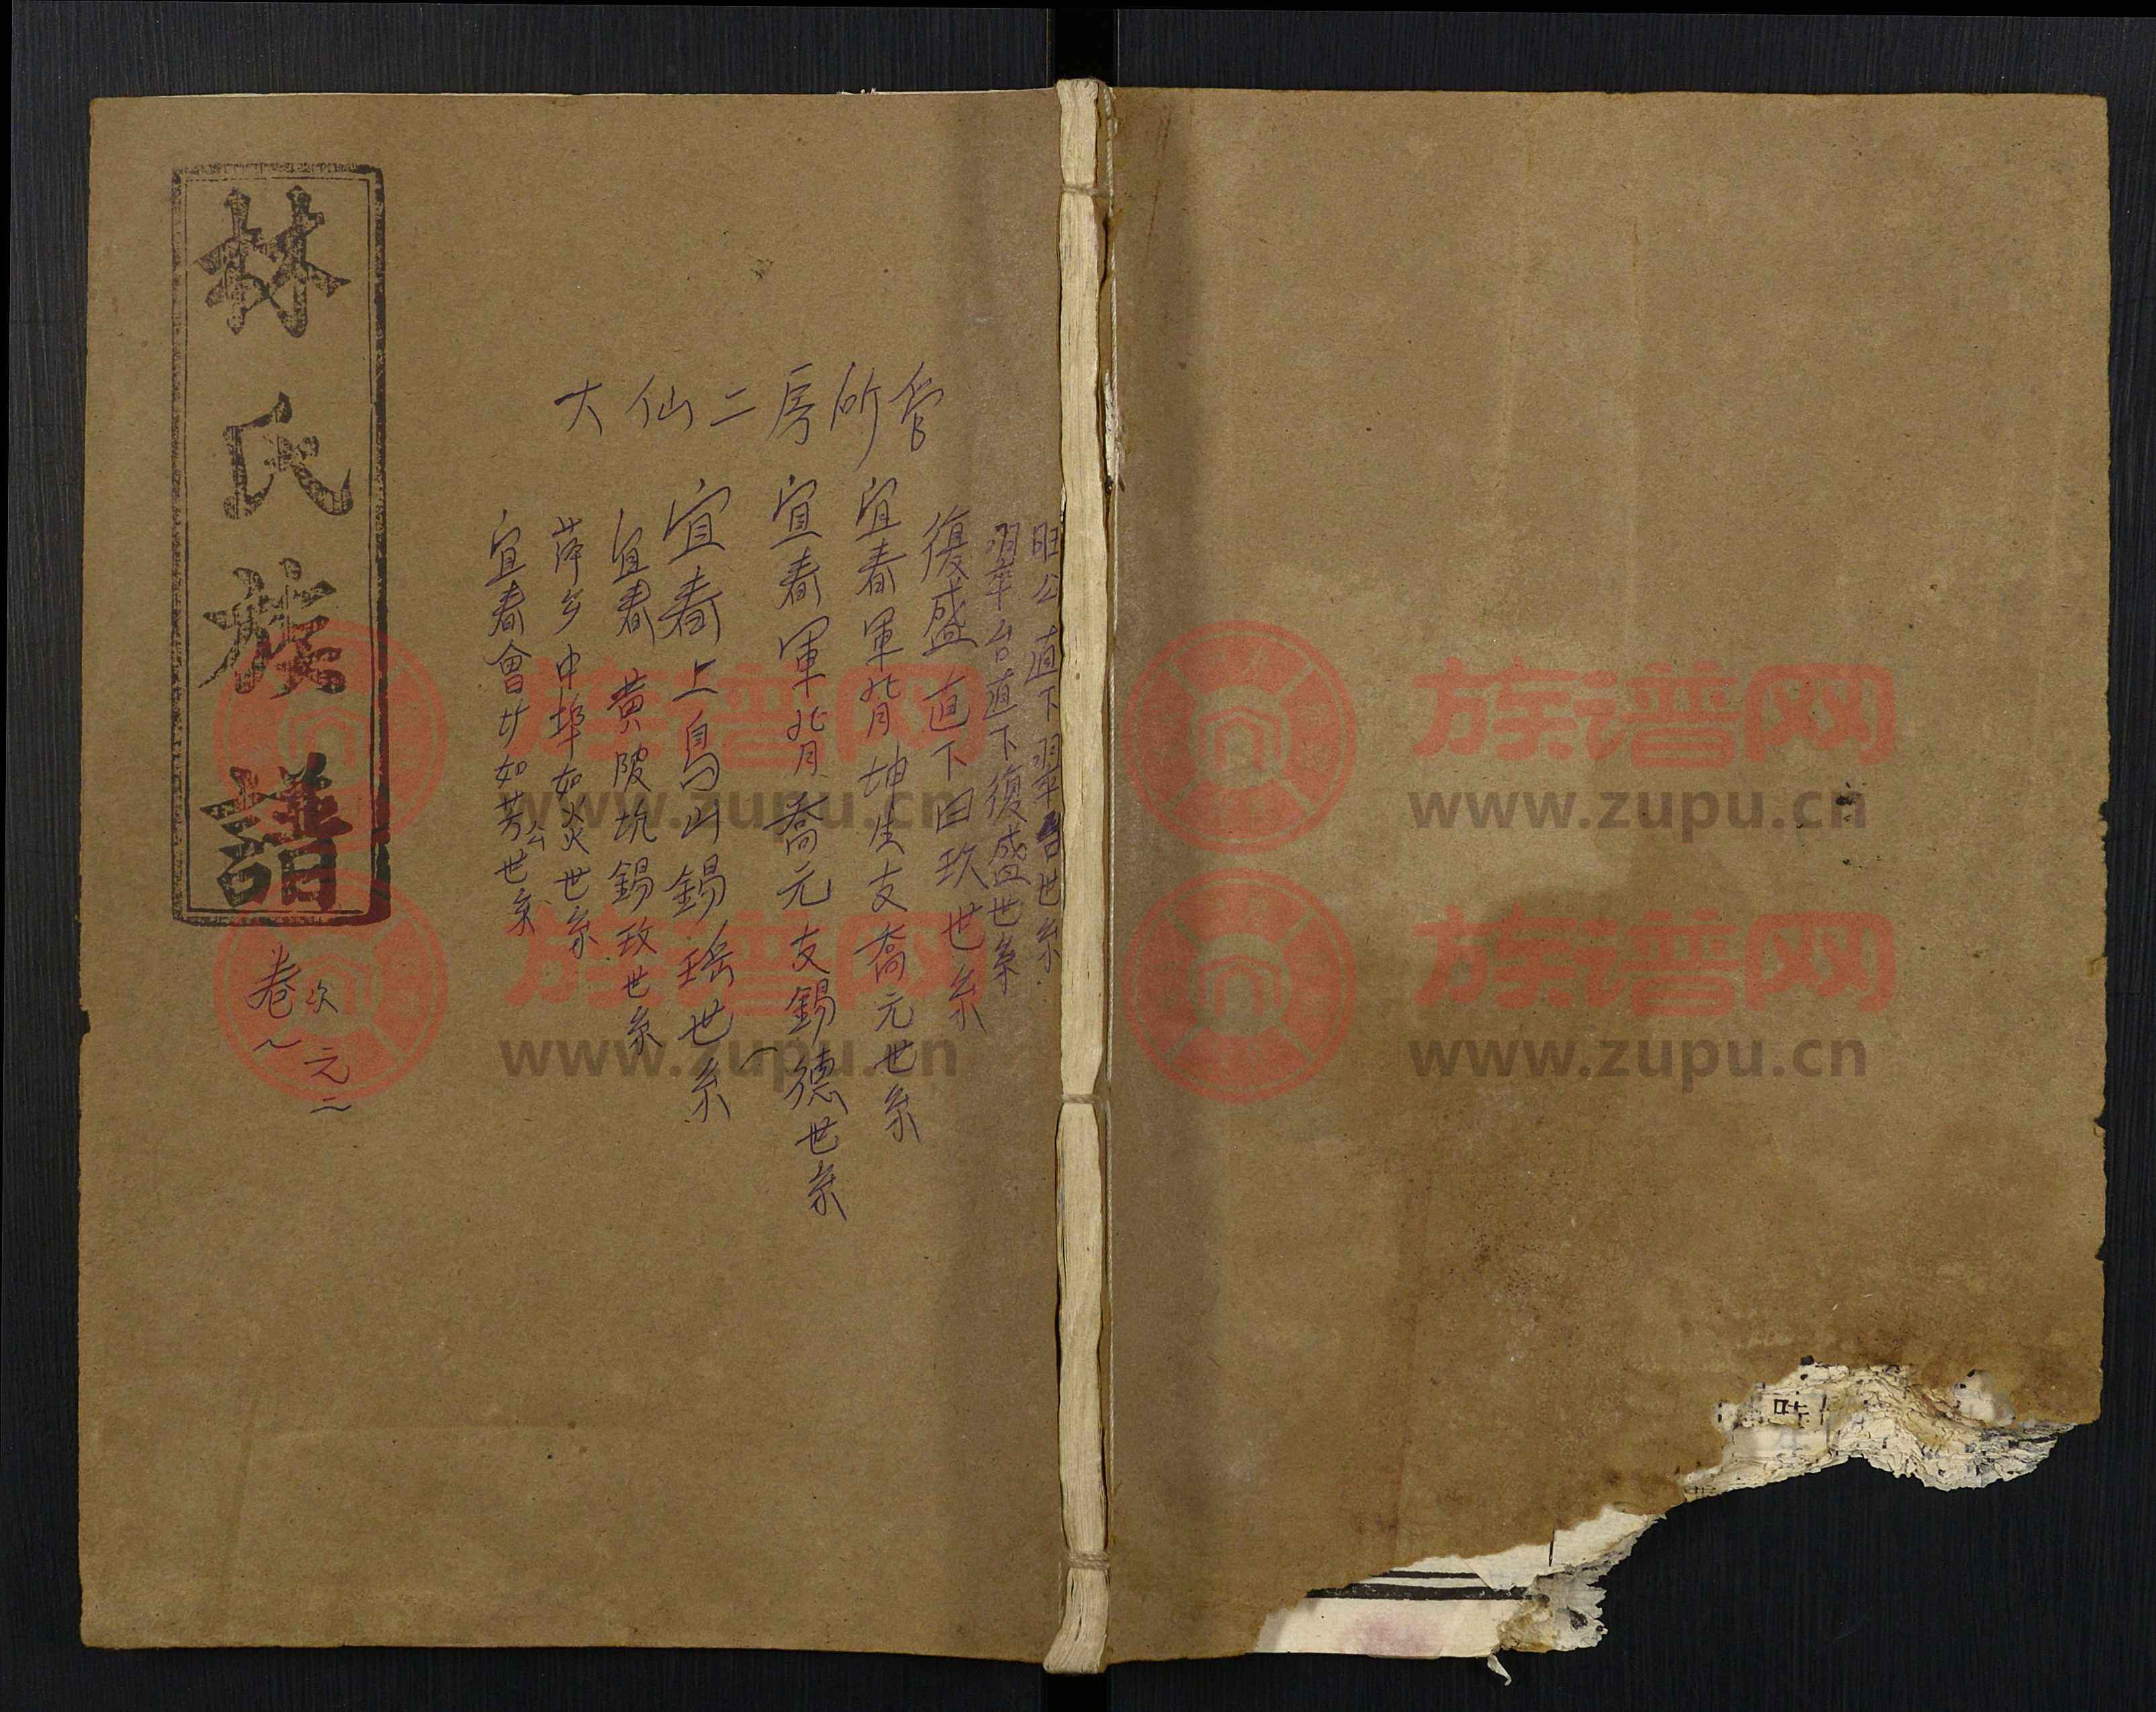 林氏族譜
卷次元二
大仙二房所管
旺公直下翠台世系
翠台直下復盛世系
復盛直下曰玖世系
宜春軍背坤生支喬元世系
宜春軍背喬元支錫德世系
宜春上烏山錫瑶世系
宜春黄陂坑錫玫世系
萍乡中埠如炎世系
宜春會廿如芳公世系
族谱网
www.zupu.cn
族谱网
www.zupu.cn
族谱网
www.zupu.cn
族谱网
www.zupu.cn